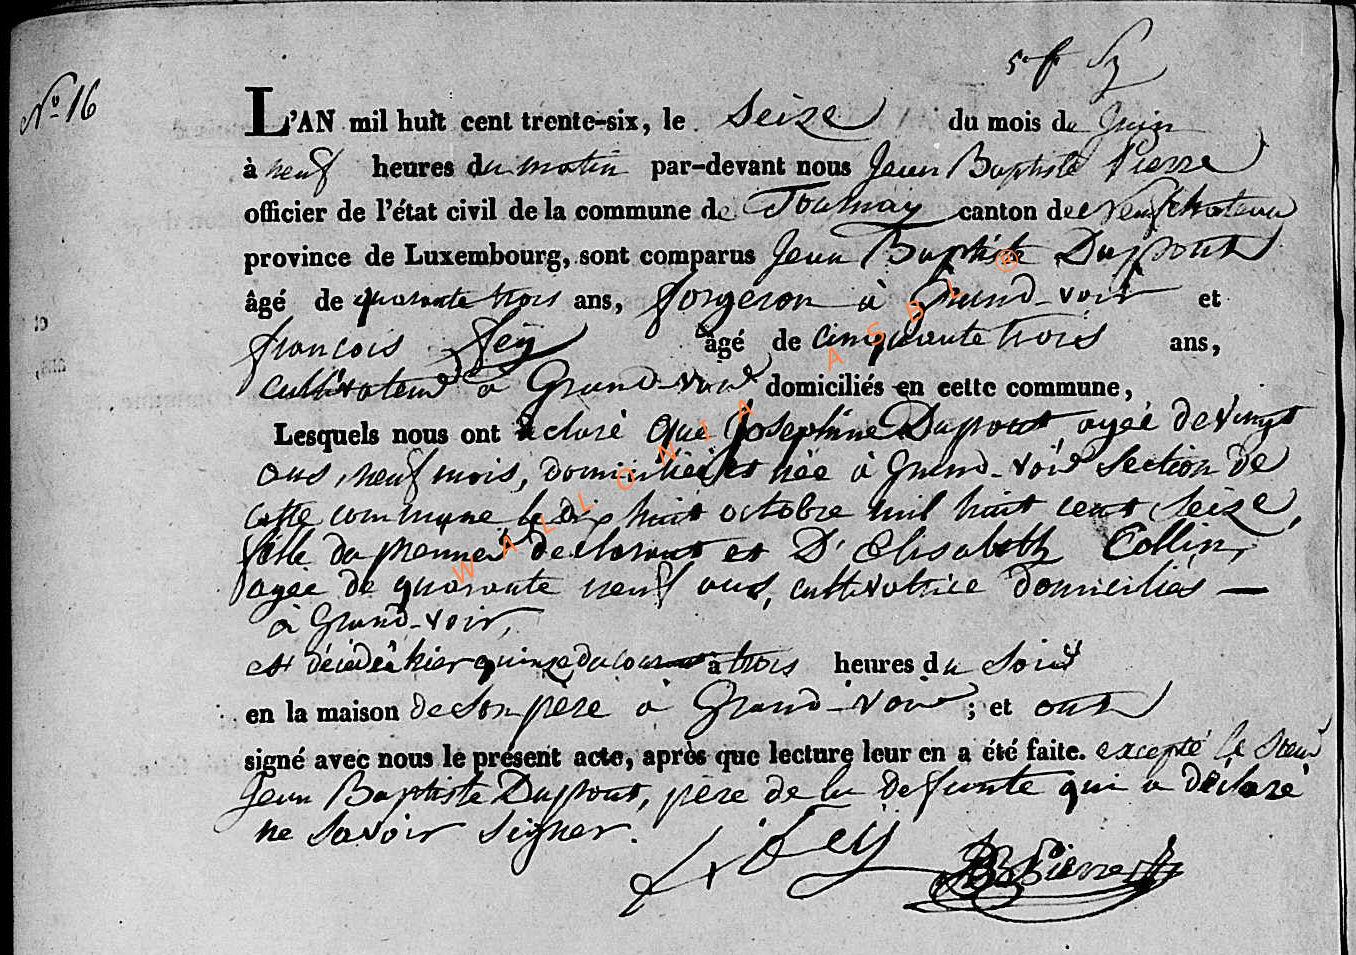 N° 16
L'AN mil huit cent trente-six, le seize du mois de Juin
à neuf heures du matin par-devant nous Jean Baptiste Pierre
officier de l'état civil de la commune de Tournay canton de Neufchateau
province de Luxembourg, sont comparus Jean Baptiste Dupont
âgé de quarante trois ans, forgeron à Grand-voir et
françois fey âgé de cinquante trois ans,
cultivateur à Grand-voir domiciliés en cette commune,
Lesquels nous ont déclaré que Josephine Dupont agée de vingt
ans, neuf mois, domiciliée et née à Grand-voir section de
cette commune le dix huit octobre mil huit cent seize,
fille du premier declarant et D' Elisabeth Collin,
agée de quarante neuf ans, cultivatrice domiciliés —
à Grand-voir,
est décédée hier quinze du courant à trois heures du soir
en la maison de son père à Grand-voir ; et ont
signé avec nous le présent acte, après que lecture leur en a été faite. excepté le sieur
Jean Baptiste Dupont, père de la defunte qui a déclaré
ne savoir signer.
fx fey JB Pierre
WALLONIA ASBL ®